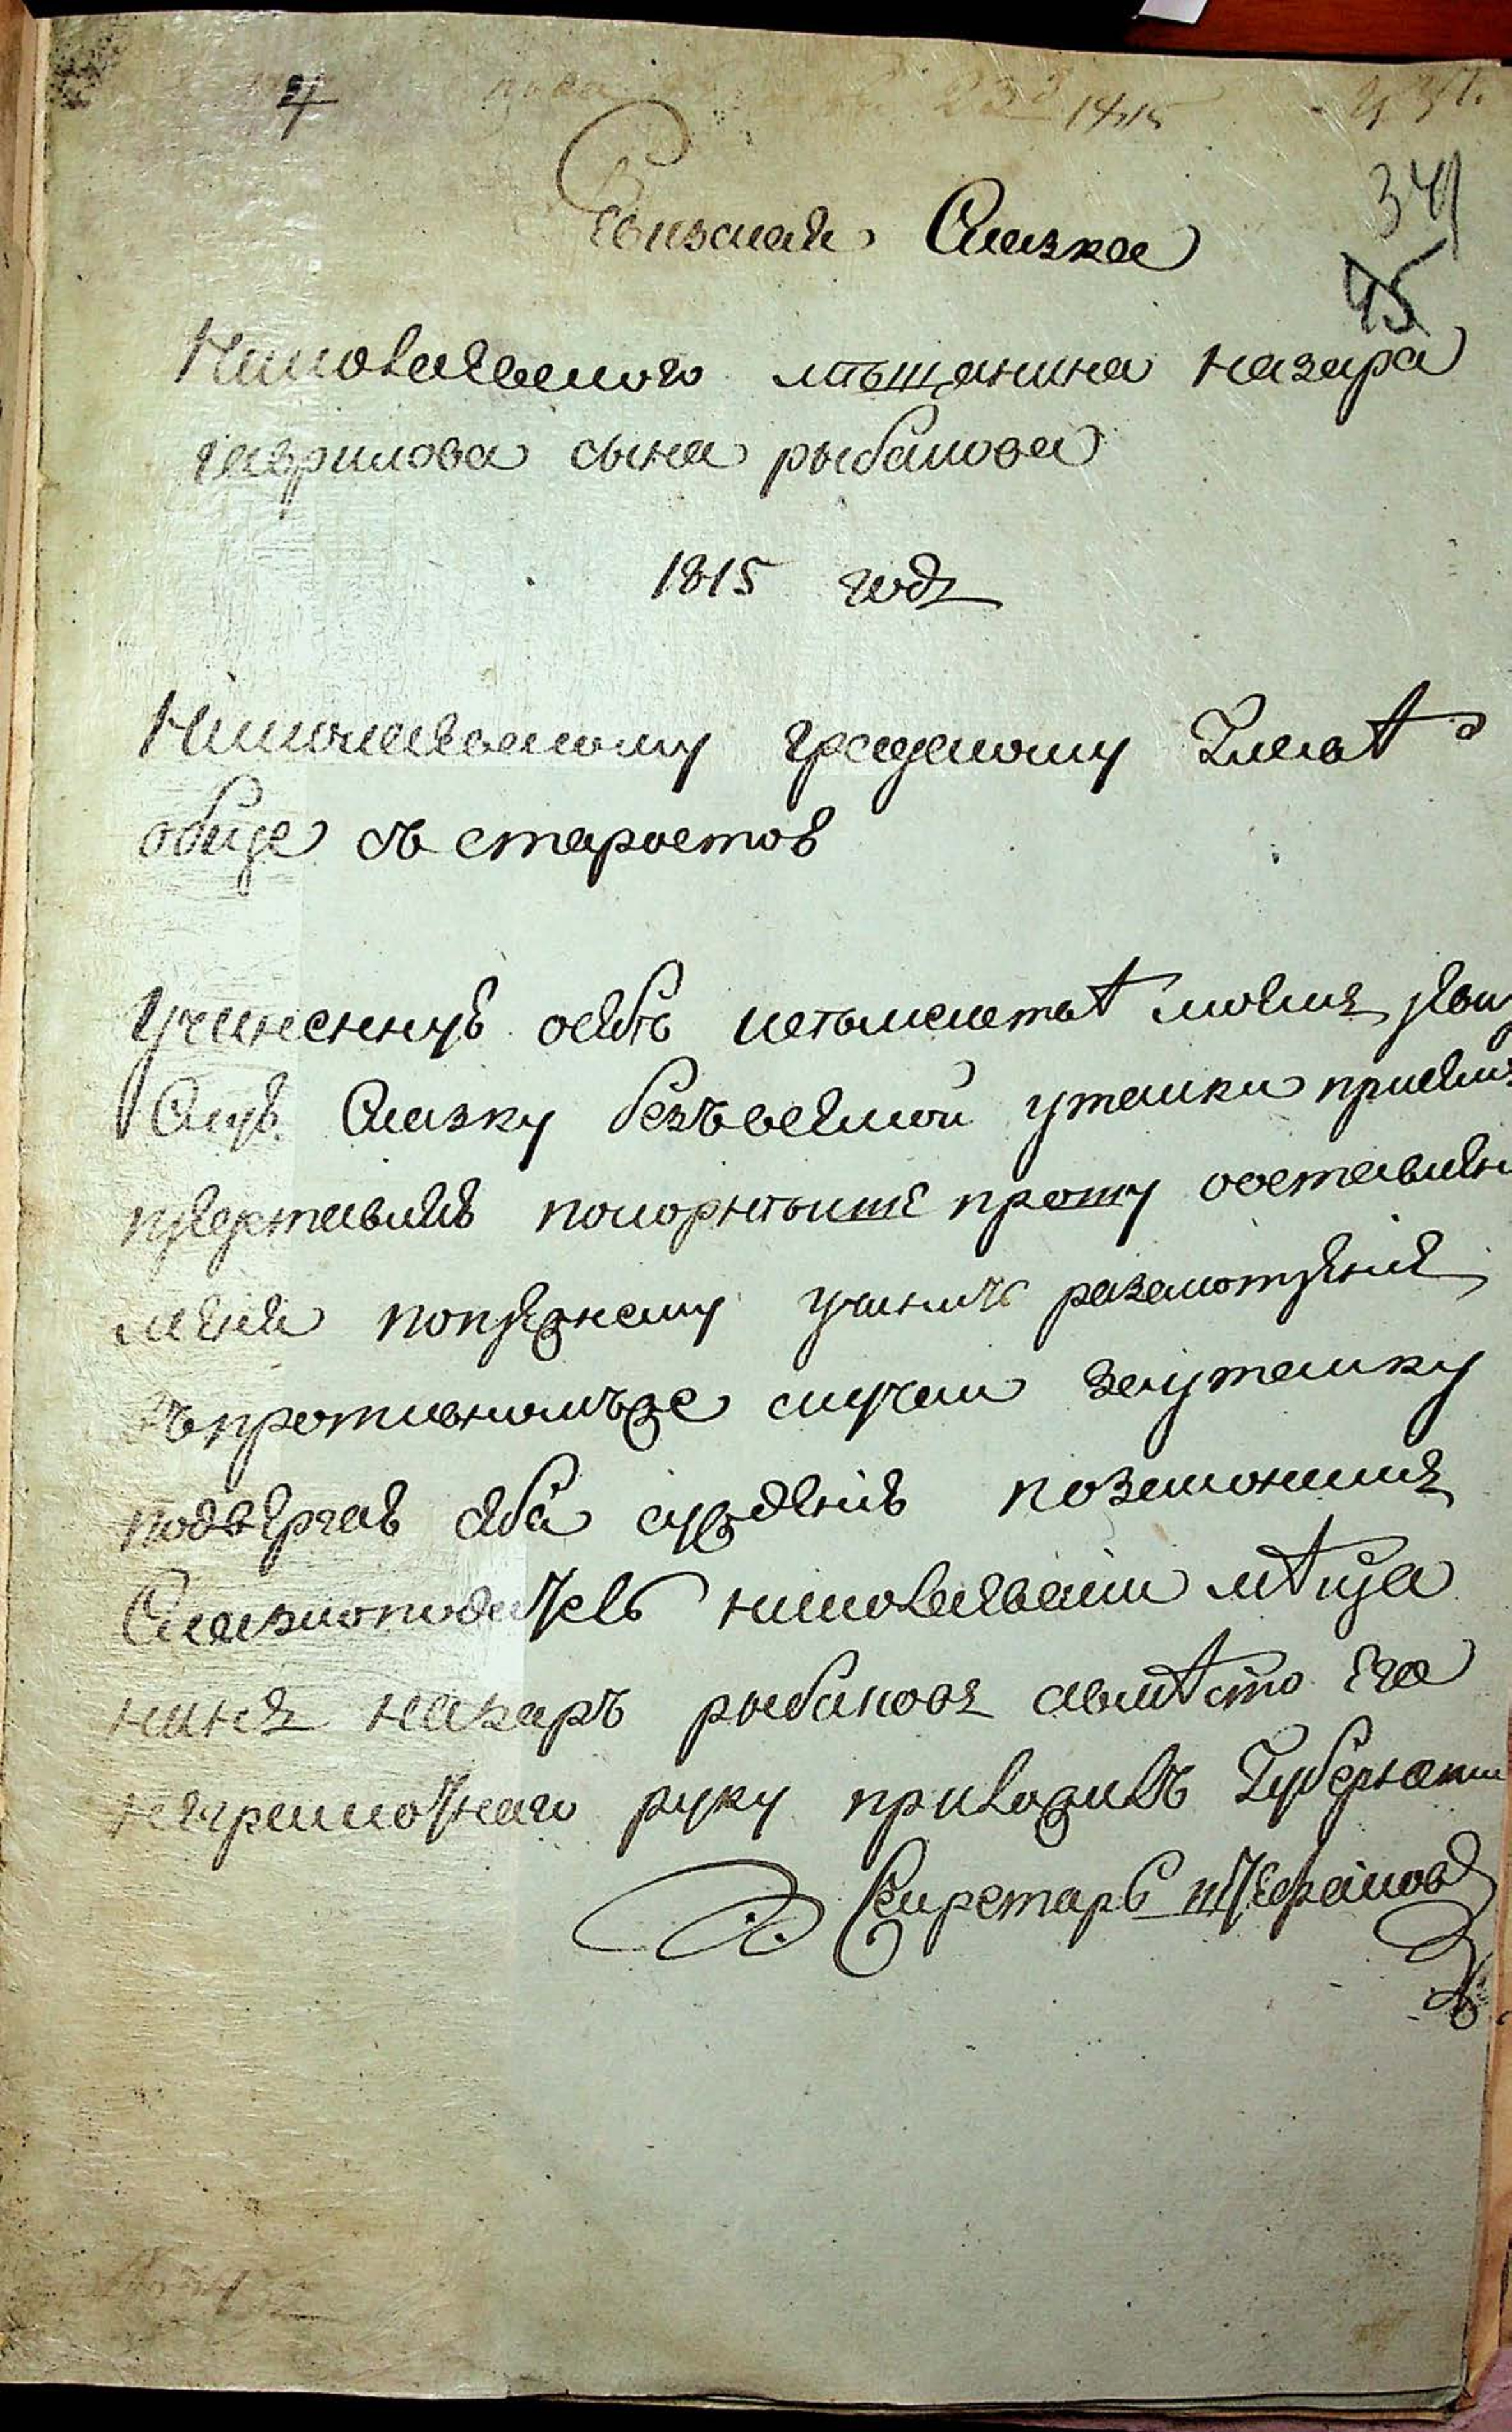 4
1815
341
45
Ревизская Сказка
Николаевского мѣщанина назара
гаврилова сына рыбакова
1815 годъ
Николаевскому градскому Главѣ
обще съ старостою
Учиненную осебѣ исемействѣ моемъ
Сию Сказку безъвсякой утайки
представляя покорнѣйше прошу оставлении
меня попрежнему учинить разсмотрение
въпротивномъже случаи заутайку
подвергаю себя суждению позаконамъ
Сказкоподатель николаевский мѣща
нинъ назаръ рыбаковъ авмѣсто его
неграмотнаго руку приложилъ Губернский
Секретарь